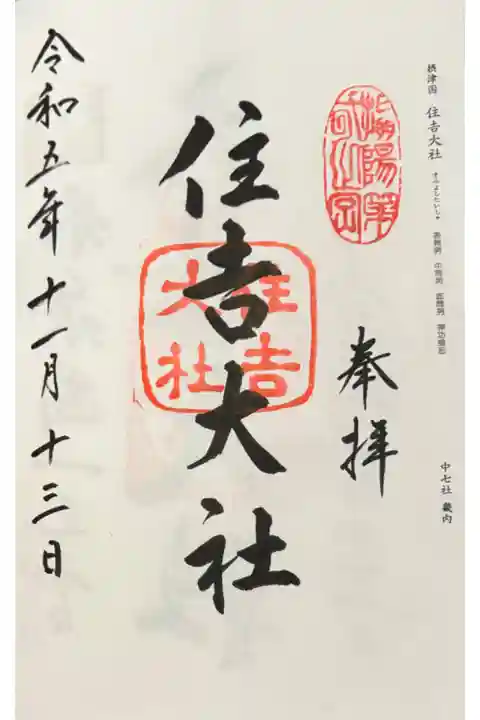 摂津国 住吉大社 すみよしたいしゃ 表筒男 中筒男 底筒男 神功皇后
中七社 畿内
奉拝
住吉大社
住吉
大社
令和五年十一月十三日